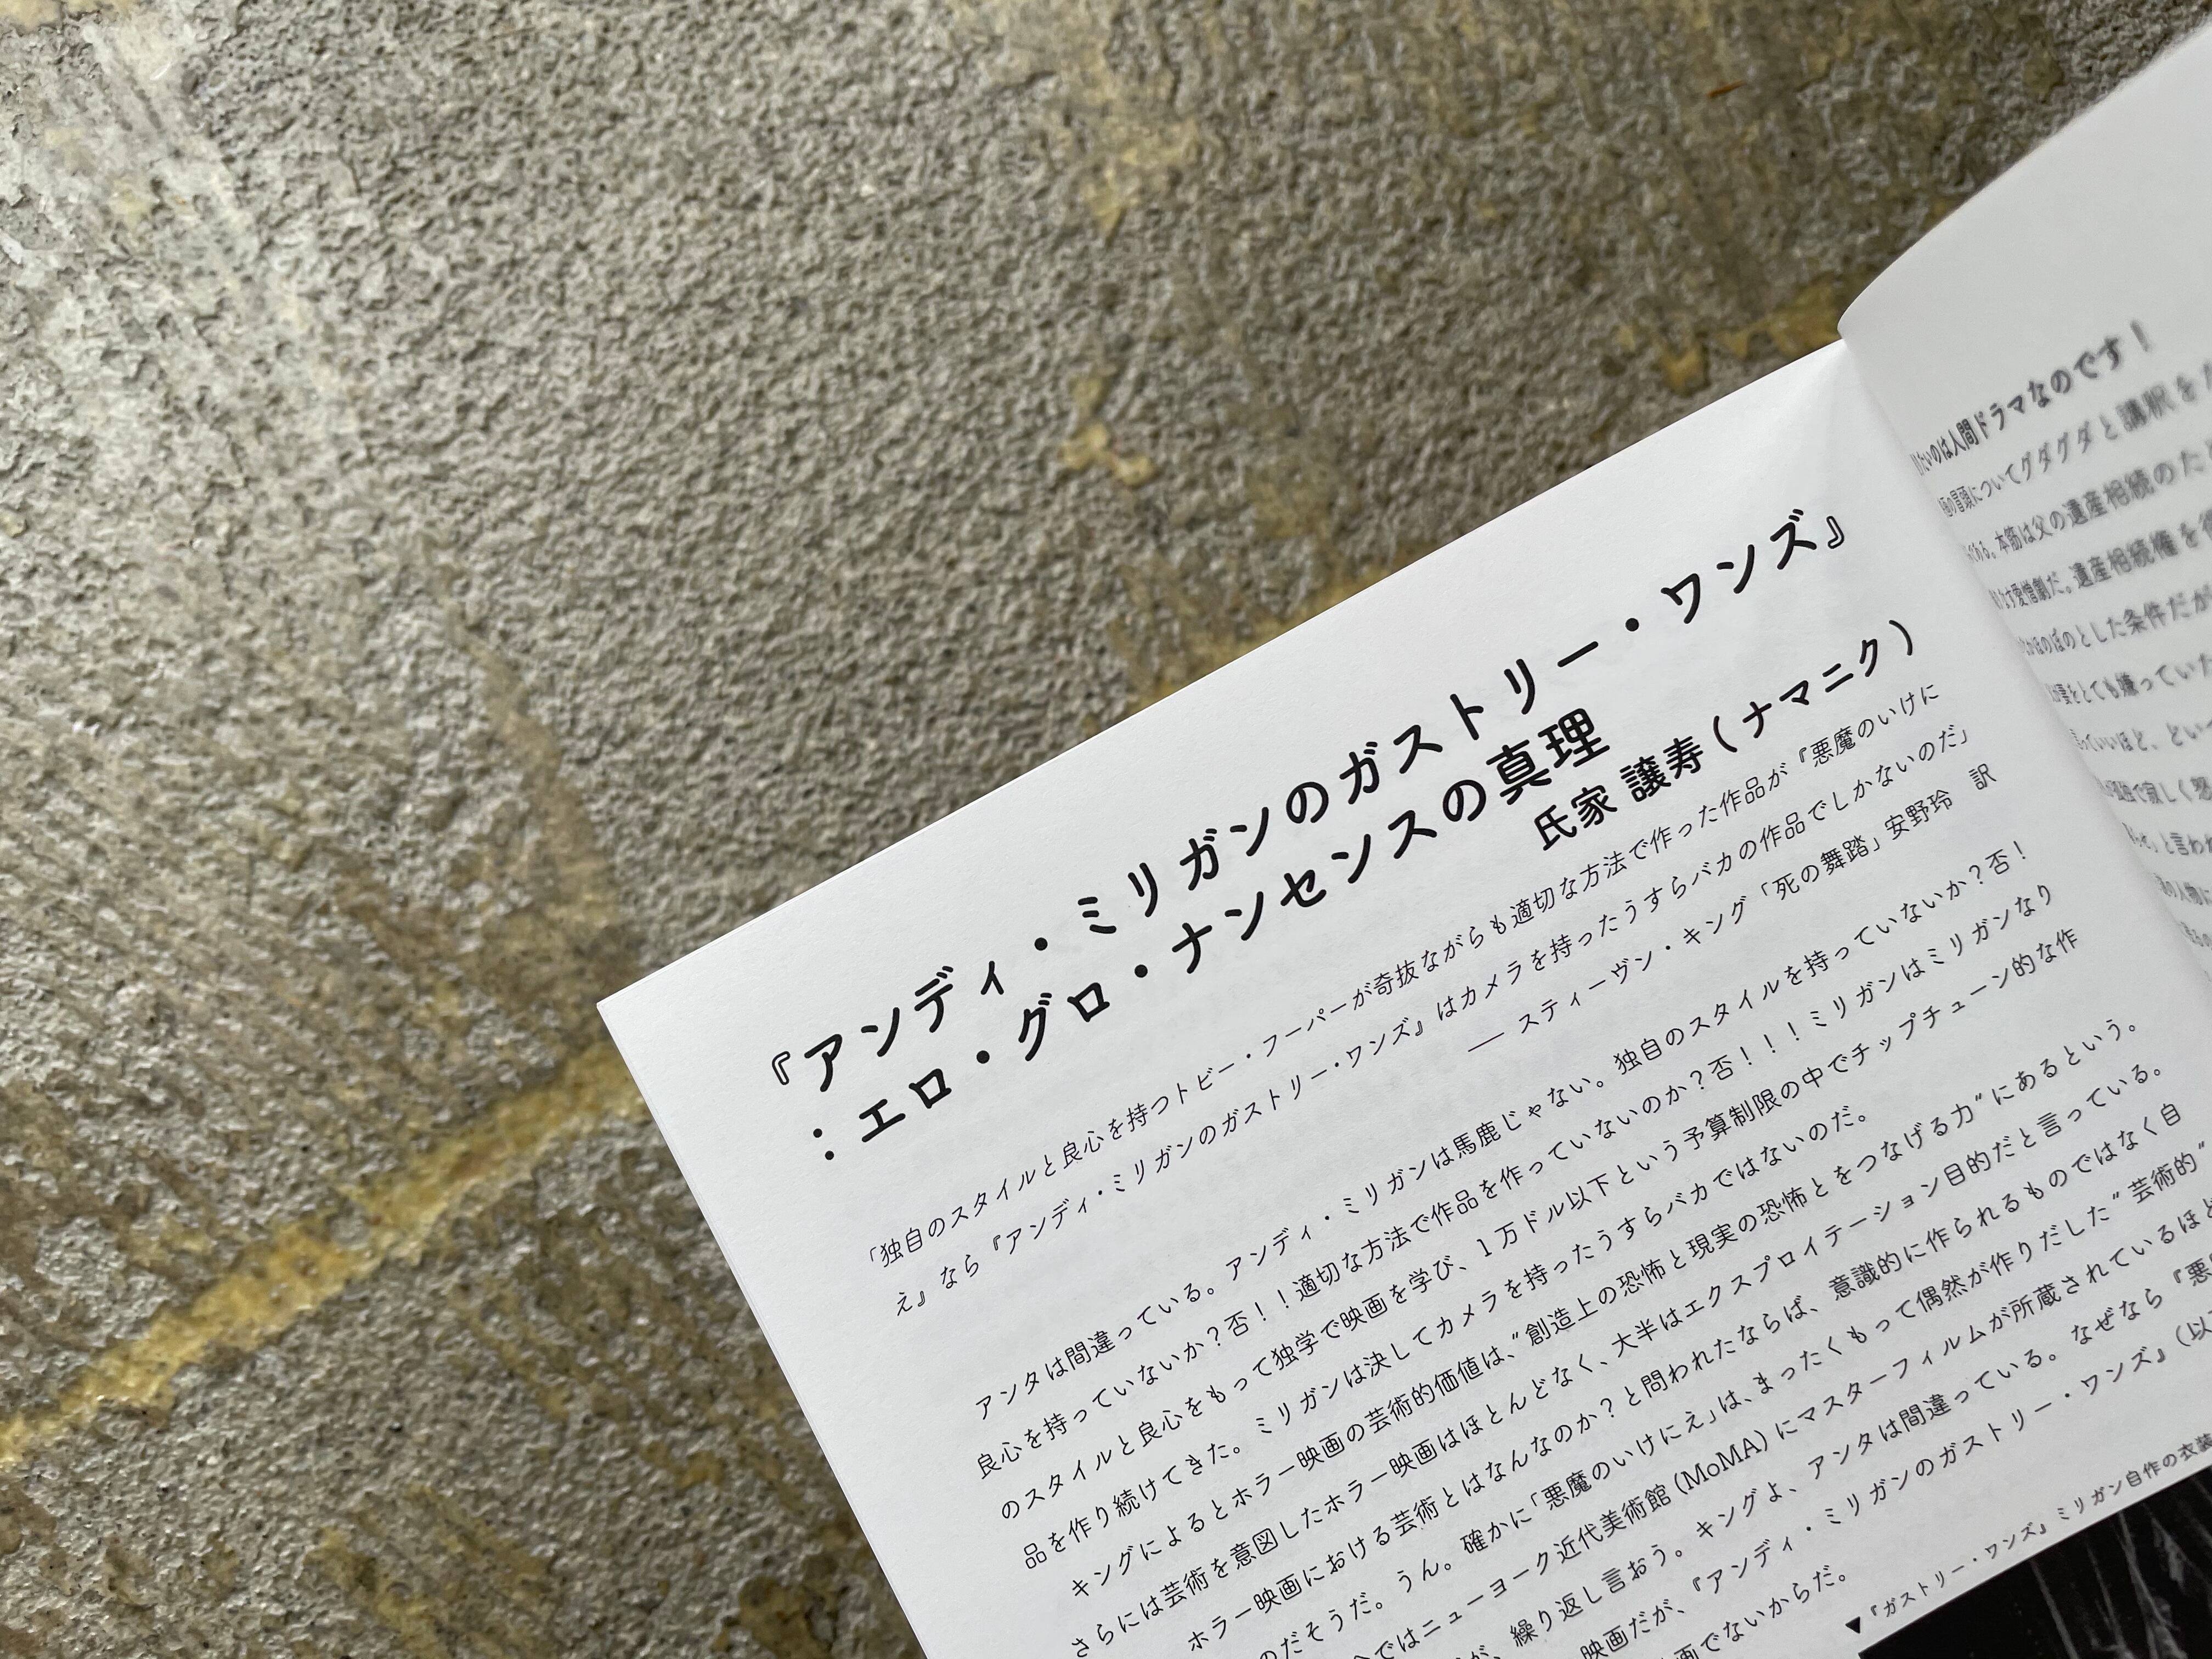 『アンディ・ミリガンのガストリー・ワンズ』
：エロ・グロ・ナンセンスの真理
氏家 譲寿 ( ナマニク )
「独自のスタイルと良心を持つトビー・フーパーが奇抜ながらも適切な方法で作った作品が『悪魔のいけに
え』なら『アンディ・ミリガンのガストリー・ワンズ』はカメラを持ったうすらバカの作品でしかないのだ」
― スティーヴン・キング「死の舞踏」安野玲　訳
アンタは間違っている。アンディ・ミリガンは馬鹿じゃない。独自のスタイルを持っていないか？否！
良心を持っていないか？否！！適切な方法で作品を作っていないのか？否！！！ミリガンはミリガンなり
のスタイルと良心をもって独学で映画を学び、1 万ドル以下という予算制限の中でチップチューン的な作
品を作り続けてきた。ミリガンは決してカメラを持ったうすらバカではないのだ。
キングによるとホラー映画の芸術的価値は、“創造上の恐怖と現実の恐怖とをつなげる力”にあるという。
さらには芸術を意図したホラー映画はほとんどなく、大半はエクスプロイテーション目的だと言っている。
ホラー映画における芸術とはなんなのか？と問われたならば、意識的に作られるものではなく自
のだそうだ。うん。確かに「悪魔のいけにえ」は、まったくもって偶然が作りだした“芸術的”
ではニューヨーク近代美術館 (MoMA) にマスターフィルムが所蔵されているほど
が、繰り返し言おう。キングよ、アンタは間違っている。なぜなら『悪
映画だが、『アンディ・ミリガンのガストリー・ワンズ』（以
画でないからだ。
▼『ガストリー・ワンズ』ミリガン自作の衣装
いのは人間ドラマなのです！
の冒頭についてグダグダと講釈を
ある。本筋は父の遺産相続のた
愛憎劇だ。遺産相続権を
ほのぼのとした条件だが
とても嫌っていた
いいほど、とい
で寂しく
」と言わ
の人物に